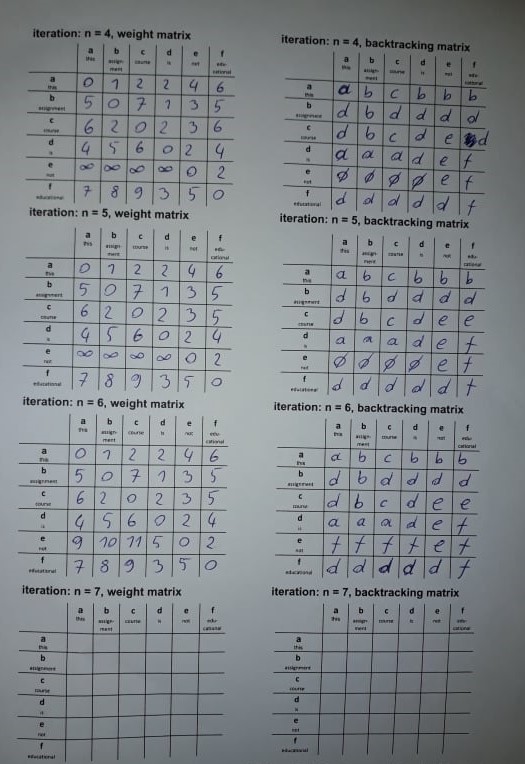 iteration: n = 4, weight matrix
a b c d e f
this assign-ment course is not edu-cational
a this 0 1 2 2 4 6
b assignment 5 0 7 1 3 5
c course 6 2 0 2 3 6
d is 4 5 6 0 2 4
e not ∞ ∞ ∞ ∞ 0 2
f educational 7 8 9 3 5 0
iteration: n = 4, backtracking matrix
a b c d e f
this assign-ment course is not edu-cational
a this a b c b b b
b assignment d b d d d d
c course d b c d e d
d is a a a d e f
e not ∅ ∅ ∅ ∅ e f
f educational d d d d d f
iteration: n = 5, weight matrix
a b c d e f
this assign-ment course is not edu-cational
a this 0 1 2 2 4 6
b assignment 5 0 7 1 3 5
c course 6 2 0 2 3 5
d is 4 5 6 0 2 4
e not ∞ ∞ ∞ ∞ 0 2
f educational 7 8 9 3 5 0
iteration: n = 5, backtracking matrix
a b c d e f
this assign-ment course is not edu-cational
a this a b c b b b
b assignment d b d d d d
c course d b c d e e
d is a a a d e f
e not ∅ ∅ ∅ ∅ e f
f educational d d d d d f
iteration: n = 6, weight matrix
a b c d e f
this assign-ment course is not edu-cational
a this 0 1 2 2 4 6
b assignment 5 0 7 1 3 5
c course 6 2 0 2 3 5
d is 4 5 6 0 2 4
e not 9 10 11 5 0 2
f educational 7 8 9 3 5 0
iteration: n = 6, backtracking matrix
a b c d e f
this assign-ment course is not edu-cational
a this a b c b b b
b assignment d b d d d d
c course d b c d e e
d is a a a d e f
e not f f f f e f
f educational d d d d d f
iteration: n = 7, weight matrix
a b c d e f
this assign-ment course is not edu-cational
a this
b assignment
c course
d is
e not
f educational
iteration: n = 7, backtracking matrix
a b c d e f
this assign-ment course is not edu-cational
a this
b assignment
c course
d is
e not
f educational